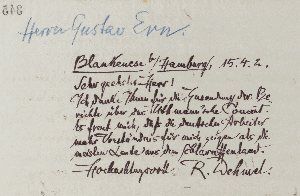 Herrn Gustav Ern.
Blankenese b/Hamburg, 15. 4. 2.
Sehr geehrter Herr!
Ich danke Ihnen für die Zusendung der Be-
richte über das Uhlmann'sche Concert.
Es freut mich, daß die deutschen Arbeiter
mehr Verständnis für mich zeigen als die
meisten Leute aus dem Schlaraffenland.
Hochachtungsvoll R. Dehmel.